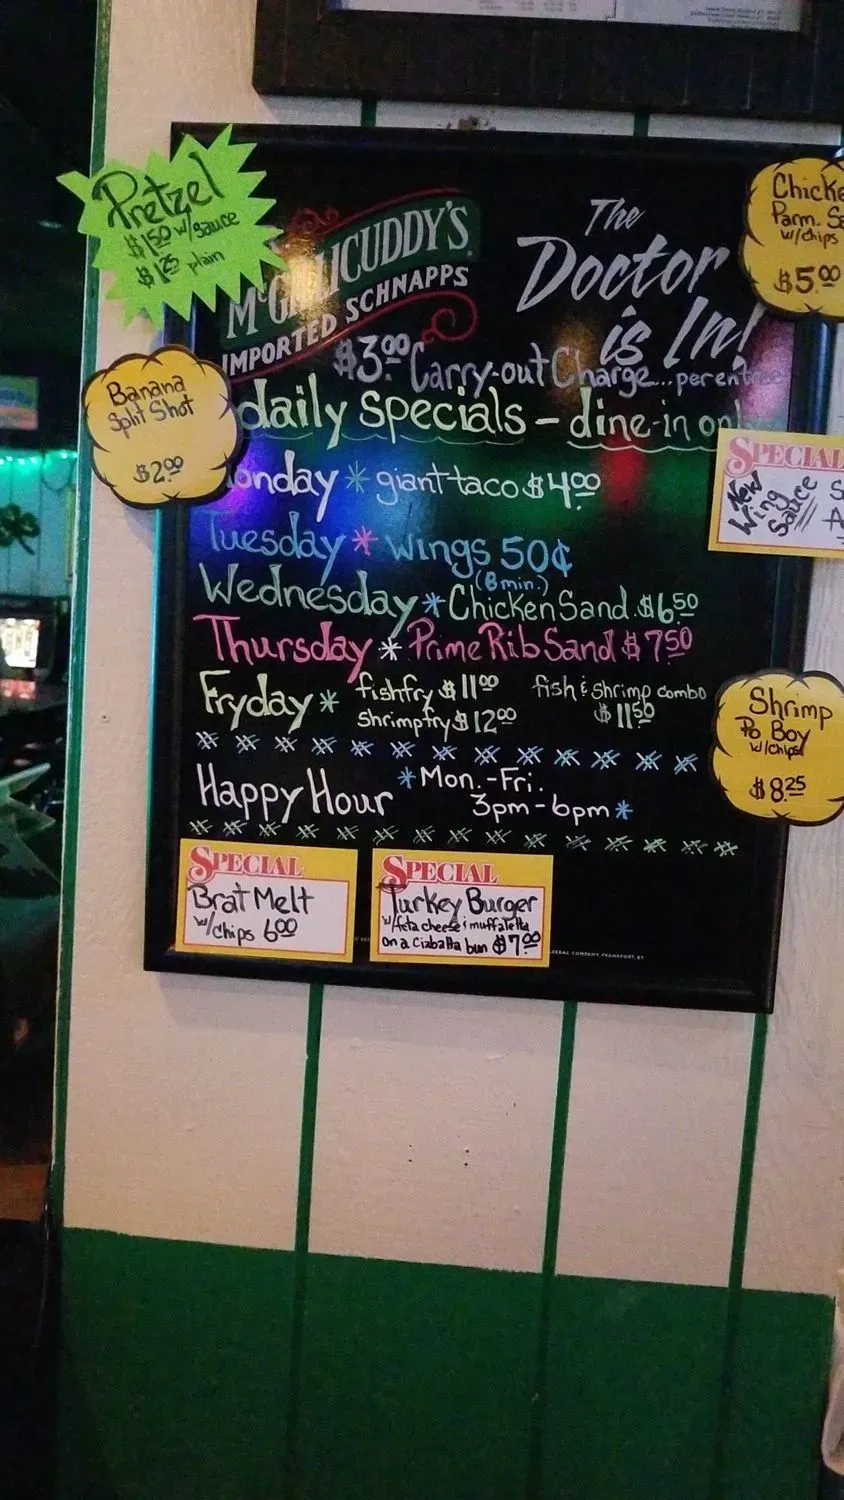 Pretzel
$1.50 w/sauce
$1.25 plain
McGILLICUDDY'S
IMPORTED SCHNAPPS
The
Doctor
is In!
$3.00 Carry-out Charge... per entree
daily specials - dine-in only
Monday * giant taco $4.00
Tuesday * wings 50¢
(8 min.)
Wednesday * Chicken Sand. $6.50
Thursday * Prime Rib Sand $7.50
Fryday * fishfry $11.00 fish & shrimp combo
shrimpfry $12.00 $11.50
Happy Hour * Mon.-Fri.
3pm-6pm *
Banana
Split Shot
$2.00
Parm.
w/chips
$5.00
SPECIAL
New
Wing
Sauce
Shrimp
Po Boy
w/chips
$8.25
SPECIAL
Brat Melt
w/chips 6.00
SPECIAL
Turkey Burger
w/feta cheese & muffaletta
on a ciabatta bun $7.00
COMPANY, FRANKFORT, KY